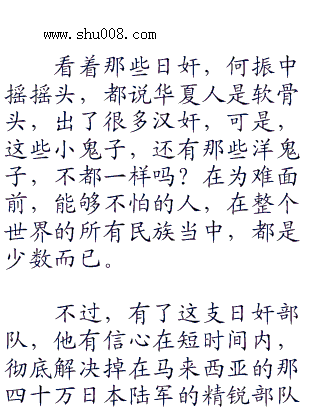 www.shu008.com
看着那些日奸，何振中
摇摇头，都说华夏人是软骨
头，出了很多汉奸，可是，
这些小鬼子，还有那些洋鬼
子，不都一样吗？在为难面
前，能够不怕的人，在整个
世界的所有民族当中，都是
少数而已。
不过，有了这支日奸部
队，他有信心在短时间内，
彻底解决掉在马来西亚的那
四十万日本陆军的精锐部队